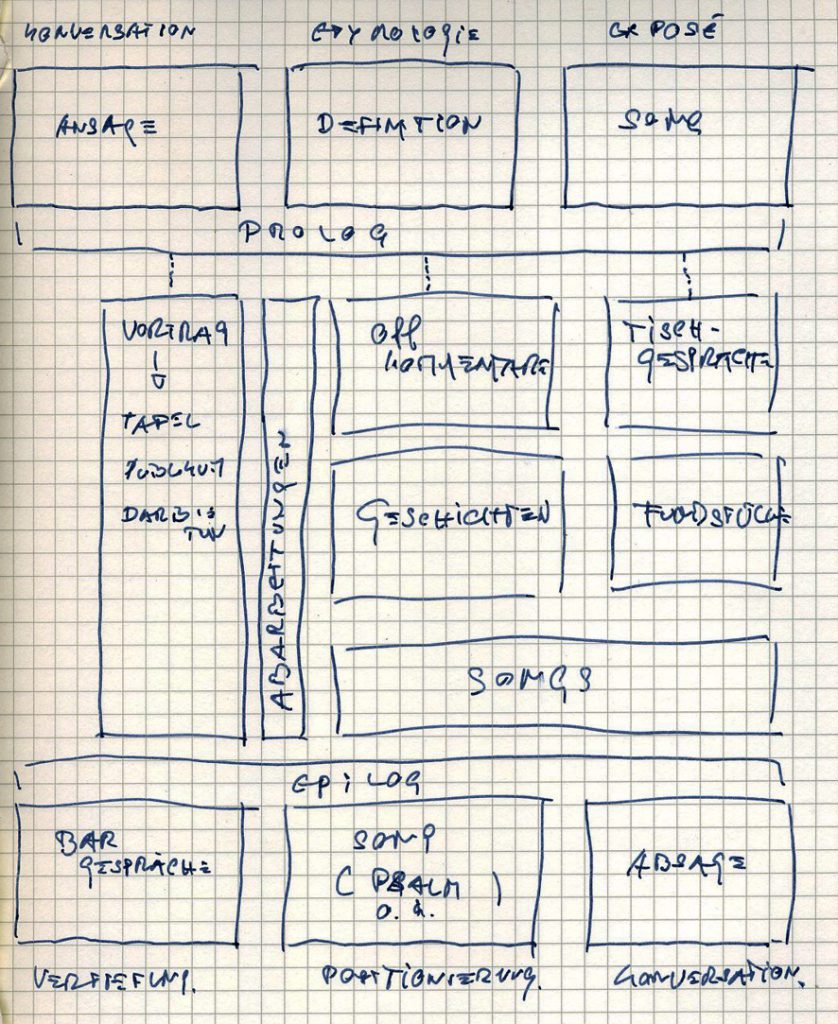 KONVERSATION
ETYMOLOGIE
EXPOSÉ
ANSAGE
DEFINITION
SONG
PROLOG
VORTRAG
TAFEL
DARBIE
TUN
ABARBEITUNGEN
Off
KOMMENTARE
TISCH-
GESPRÄCHE
GESCHICHTEN
FUNDSTÜCKE
SONGS
EPILOG
BAR
GESPRÄCHE
SONG
( PSALM )
o. ä.
ABSAGE
VERTIEFUNG.
POSITIONIERUNG.
KONVERSATION.